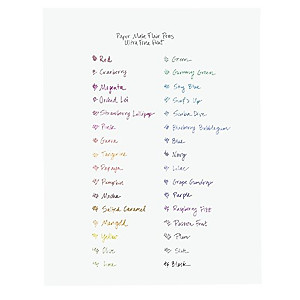 Paper Mate Flair Pens
Ultra Fine Point
Red
Cranberry
Magenta
Orchid Lei
Strawberry Lollipop
Pink
Guava
Tangerine
Papaya
Pumpkin
Mocha
Salted Caramel
Marigold
Yellow
Olive
Lime
Green
Gummy Green
Sky Blue
Surf's Up
Scuba Dive
Blueberry Bubblegum
Blue
Navy
Lilac
Grape Gumdrop
Purple
Raspberry Fizz
Passion Fruit
Plum
Slate
Black